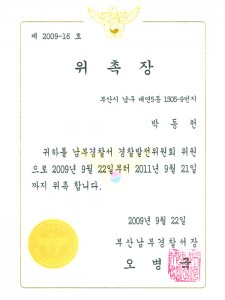 제 2009-16 호
위 촉 장
부산시 남구 대연5동 1505-9번지
박 동 천
귀하를 남부경찰서 경찰발전위원회 위원
으로 2009년 9월 22일부터 2011년 9월 21일
까지 위촉 합니다.
2009년 9월 22일
부산남부경찰서장
오 병 국